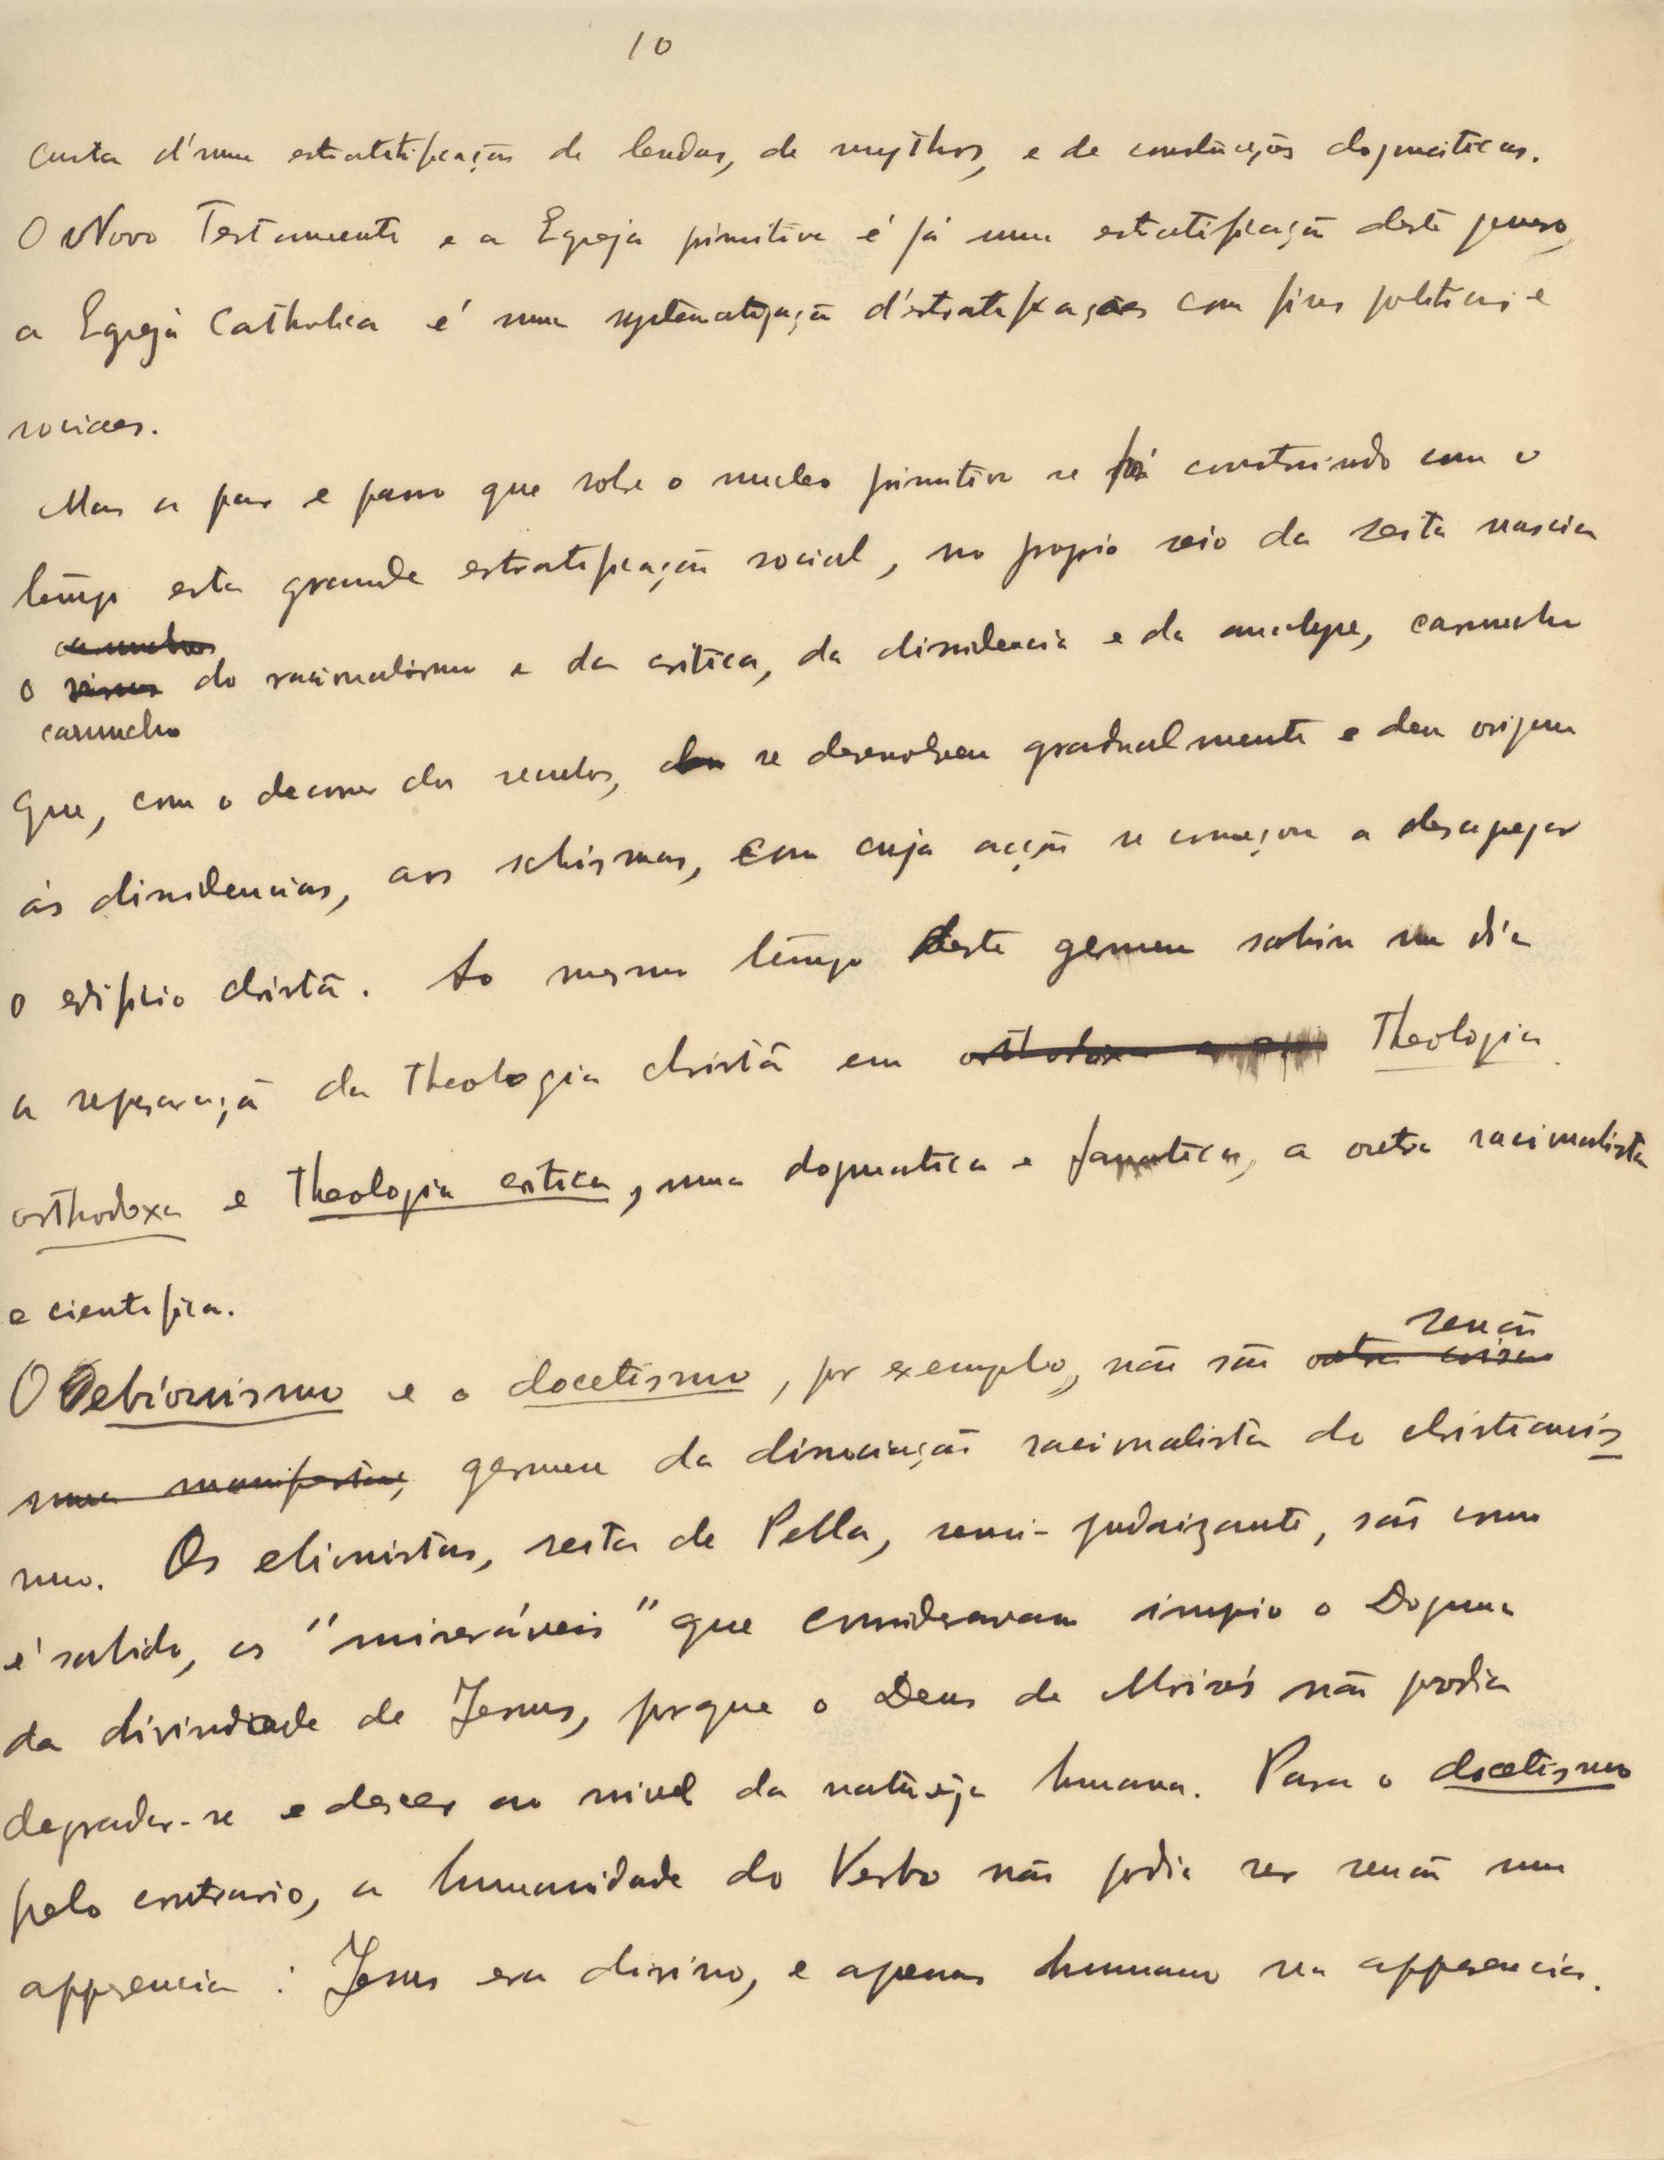 10
custa d'uma estratitificação de lendas, de mythos, e de construcções dogmaticas.
O Novo Testamento e a Egreja primitiva é já uma estratificação deste genero,
a Egreja Catholica é uma systematização d'estratificações com fins politicos e
sociaes.
Mas a par e passo que sobre o nucleo primitivo se foi construindo com o
tempo esta grande estratificação social, no proprio seio da seita nascia
caruncho
o do racionalismo e da critica, da dissidencia e da analyse, caruncho
caruncho
que, com o decorrer dos seculos, se desenvolveu gradualmente e deu origem
ás dissidencias, aos schismas, com cuja acção se começou a desagregar
o edificio christão. Ao mesmo tempo deste germen sahiu um dia
a separação da Theologia christã em orthodoxa Theologia
orthodoxa e Theologia critica, uma dogmatica e fanatica, a outra racionalista
e cientifica.
senão
O ebionismo e o docetismo, por exemplo, não são outra coisa
uma manifestaç germen da dissociação racionalista do christianis
mo. Os ebionistas, seita de Pella, semi-judaizante, são como
é sabido, os "miseráveis" que consideravam impio o Dogma
da divindade de Jesus, porque o Deus de Moisés não podia
degradar-se e descer ao nivel da natureza humana. Para o docetismo
pelo contrario, a humanidade do Verbo não podia ser senão uma
apparencia : Jesus era divino, e apenas humano na apparencia.